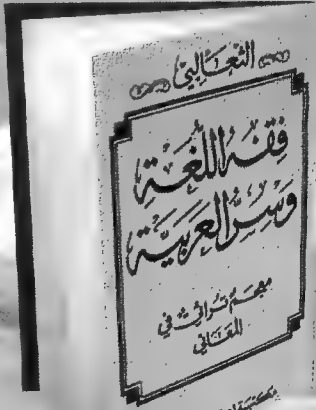 الثعالبي
فِقْهُ اللُّغَةِ
وَسِرُّ العَرَبِيَّة
معجم تراثي في
المعاني